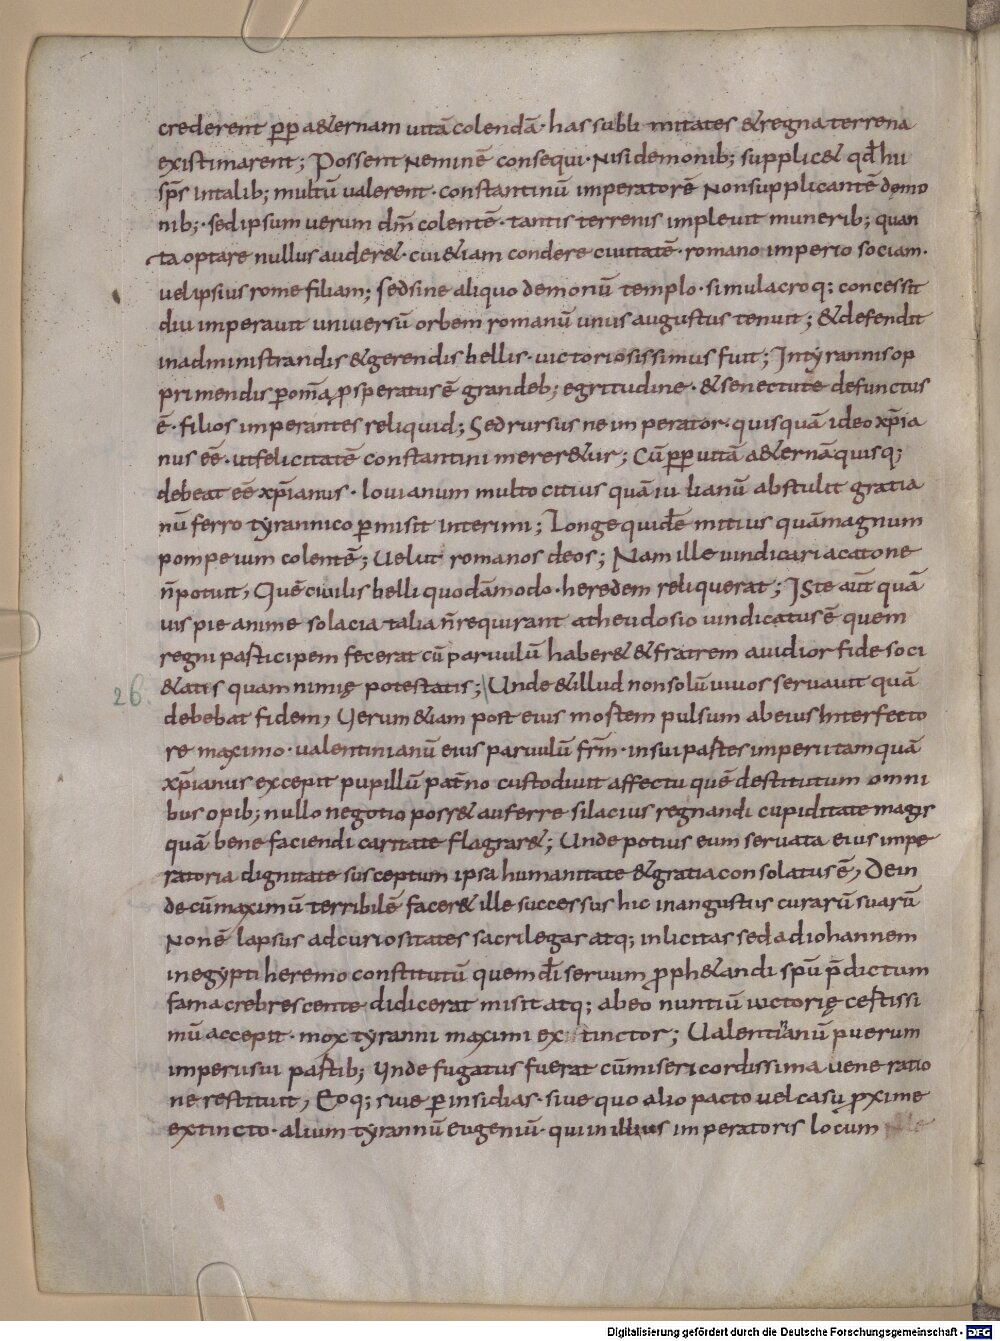 crederent ꝓp a&ernam uitā colendā · has subli mitates & regna terrena
existimarent; Possent Neminē consequi · Nisi demonib; supplic& qđ hii
sp̄s intalib; multū ualerent · constantinū imperatorē Nonsupplicantē demo
nib; · sed ipsum uerum dm̄ colentē · tantis terrenis impleuit munerib; quan
ta optare nullus auder& · cui &iam condere ciuitatē · romano imperio sociam ·
uel ipsius rome filiam; sed sine aliquo demonū templo · simulacroq; concessit
diu imperauit uniuersū orbem romanū unus augustus tenuit; & defendit
in administrandis & gerendis bellis · uictoriosissimus fuit; In tyrannis op
primendis ꝑ om̄a ꝓsperatus ē grandeb; egritudine · & senectute defunctus
ē · filios imperantes reliquid; Sed rursus ne im perator · quisquā ideo xp̄ia
nus eē · ut felicitatē constantini merer&ur; Cū ꝓp uitā a&ernā quisq;
debeat eē xp̄ianus · Iouianum multo citius quā iu lianū abstulit gratia
nū ferro tyrannico ꝑmisit interimi; Longe quidē mitius quā magnum
pompeium colentē; Uelut romanos deos; Nam ille uindicari a catone
n̄ potuit, Quē ciuilis belli quodāmodo · heredem reliquerat; Iste aūt quā
uis pie anime solacia talia n̄ requirant a theudosio uindicatus ē quem
regni participem fecerat cū paruulū haber& & fratrem auidior fide soci
&atis quam nimię potestatis; Unde & illud non solū uiuos seruauit quā
26. debebat fidem, Uerum &iam post eius mortem pulsum ab eius Interfecto
re maximo · ualentinianū eius paruulū frm̄ · in sui partes imperii tam quā
xp̄ianus excepit pupillū pat̄no custodiuit affectu quē destitutum omni
bus opib; nullo negotio poss& auferre · si lacius regnandi cupiditate magis
quā bene faciendi caritate flagrar&; Unde potius eum seruata eius impe
ratoria dignitate susceptum ipsa humanitate & gratia consolatus ē, Dein
de cū maximū terribilē facer& ille successus hic in angustiis curarū suarū
Non ē lapsus ad curiositates sacrilegas atq; inlicitas sed ad iohannem
in egypti heremo constitutū quem dī seruum ꝓph&andi spū p̄dictum
fama crebrescente didicerat misit atq; ab eo nuntiū uictorię certissi
mū accepit · mox tyranni maximi ex tinctor; Ualentianū puerum
imperii sui partib; Unde fugatus fuerat cū misericordissima uene ratio
ne restituit, Eoq; siue ꝑ insidias · siue quo alio pacto uel casu ꝓxime
extincto · alium tyrannū eugeniū · qui in illius im peratoris locum
Digitalisierung gefördert durch die Deutsche Forschungsgemeinschaft - DFG